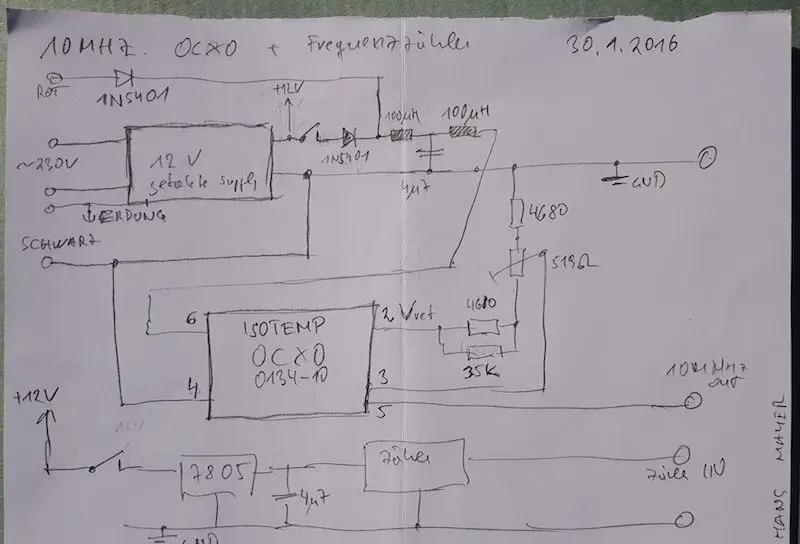 10MHZ. OCXO + Frequenzzähler 30.1.2016
ROT
1N5401
+12V
100µH
100µH
1N5401
~230V
12 V
supply
4µ7
GND
ERDUNG
4680
SCHWARZ
519Ω
6
2 Vref
4680
ISOTEMP
OCXO
0134-10
35K
3
4
5
10MHZ
out
+12V
7805
4µ7
Zähler
Zähler IN
GND
HANS MAYER